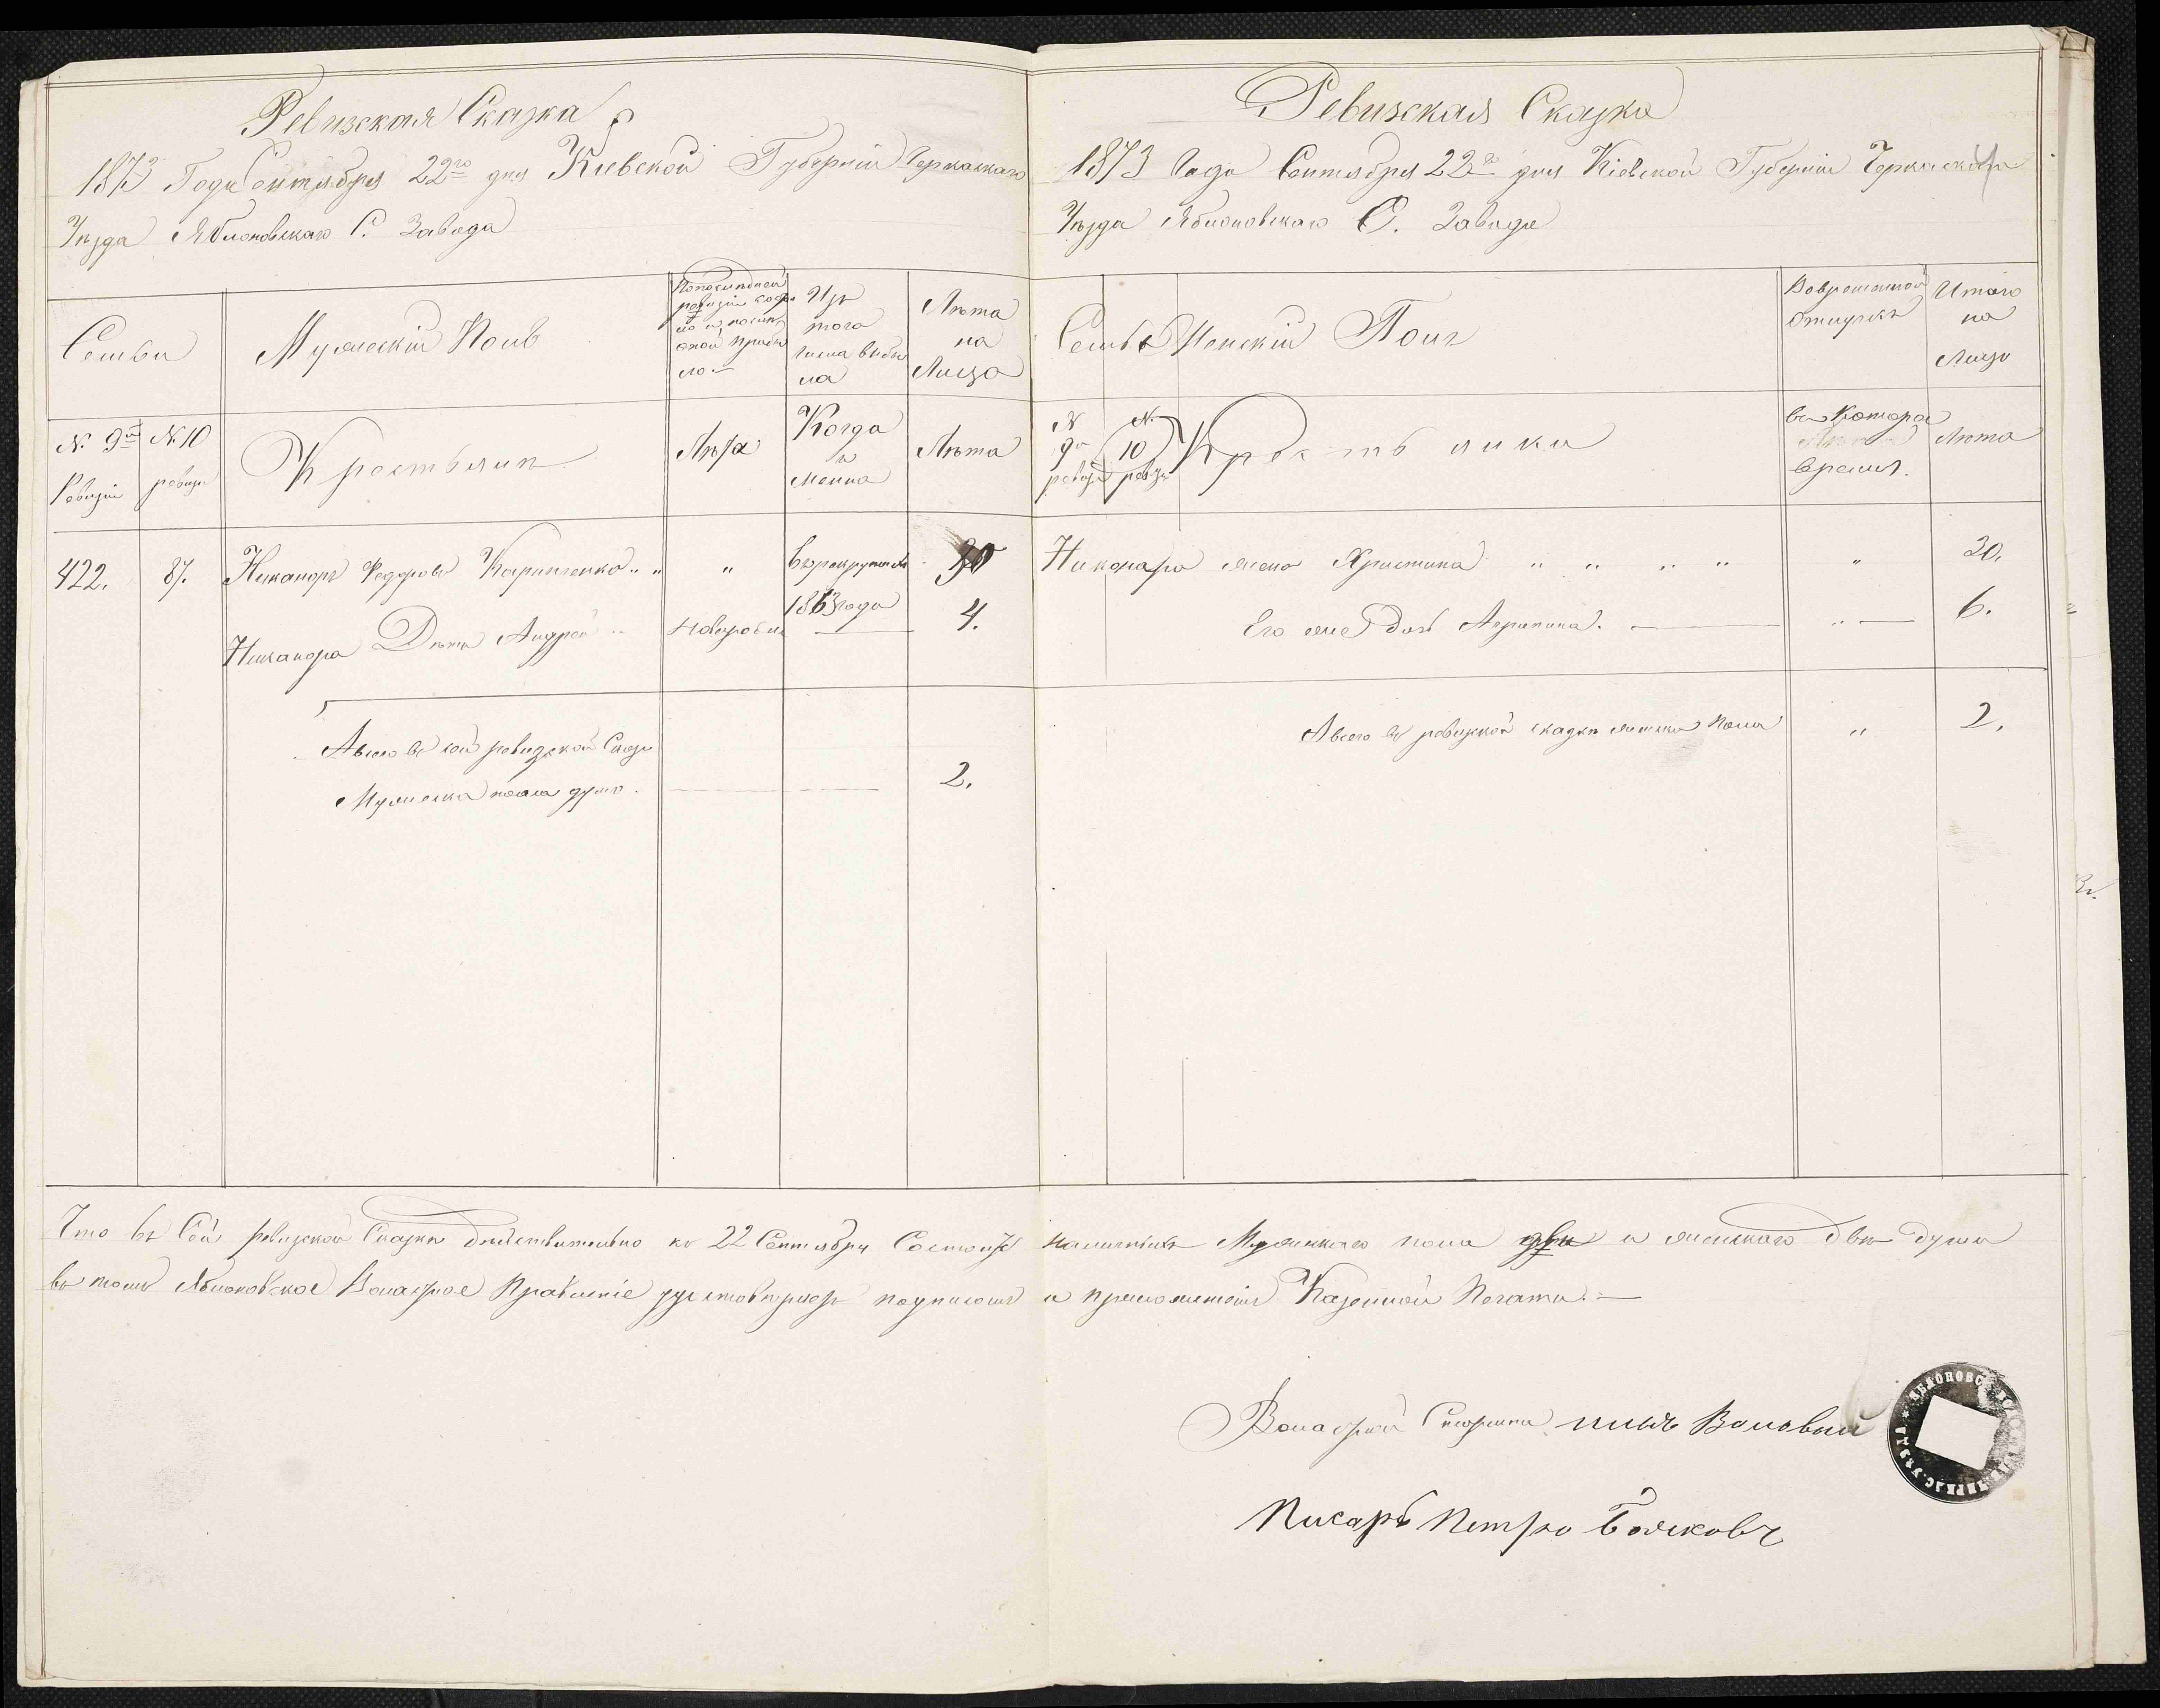 Ревизская Сказка
1873 Года Сентября 22го дня Кіевской Губерніи Черкаскаго
Уѣзда Яблоновскаго С. Завода
Семьи
Мужескій Полъ
По последней
ревизіи
Изъ
того
числа выбы
ла
Лѣта
на
Лицо
№ 9й
Ревизіи
№ 10
ревизи
Крестьянъ
Лѣта
Когда
и
Менно
Лѣта
422.
87.
Никаноръ Федоровъ Карпенко
"
Въ рекрутахъ
1863 года
30
Никанора Дѣти Андрей
Новорожд
4.
А всего въ сей ревизской Сказ
Мужеска пола душъ.
2.
Ревизская Сказка
1873 Года Сентября 22го дня Кіевской Губерніи Черкаскаго
Уѣзда Яблоновскаго С. Завода
Семьи
Женскій Полъ
Вовременной
Отлучкѣ
Итого
на
Лицо
№
9й
ревизи
№
10
ревзи
Крестьянки
въ Которое
время.
Лѣта
Никанора жена Христина
"
30.
Его же дочь Агрипина.
6.
А всего въ ревизской сказкѣ женска Пола
"
2.
Что въ Сей ревизской Сказкѣ дѣйствительно къ 22 Сентября Состоитъ наличныхъ Мужескаго пола две и женскаго двѣ души
въ томъ Яблоновское Волосное Правленіе удостовѣряетъ подписомъ и приложеніемъ Казенной Печати.
Волосной Старшина Воловый
Писарь Петро